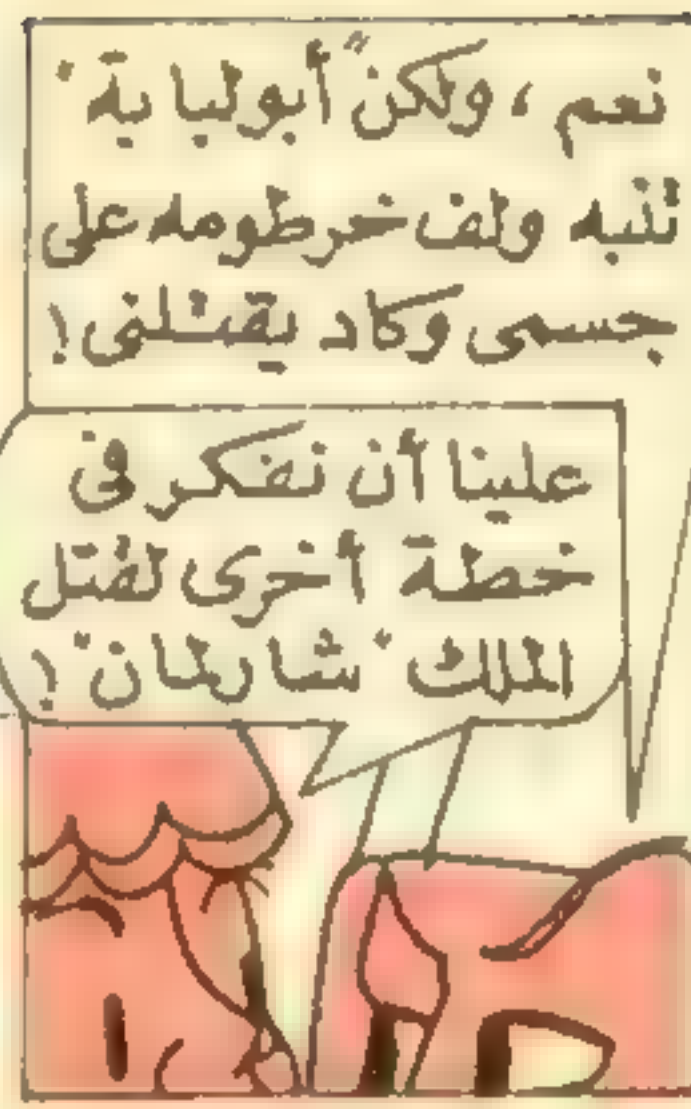 نعم ، ولكنّ "أبوليا ية"
تنبه ولف خرطومه على
جسمى وكاد يقتلنى !
علينا أن نفكر فى
خطة أخرى لقتل
الملك "شارلمان" !